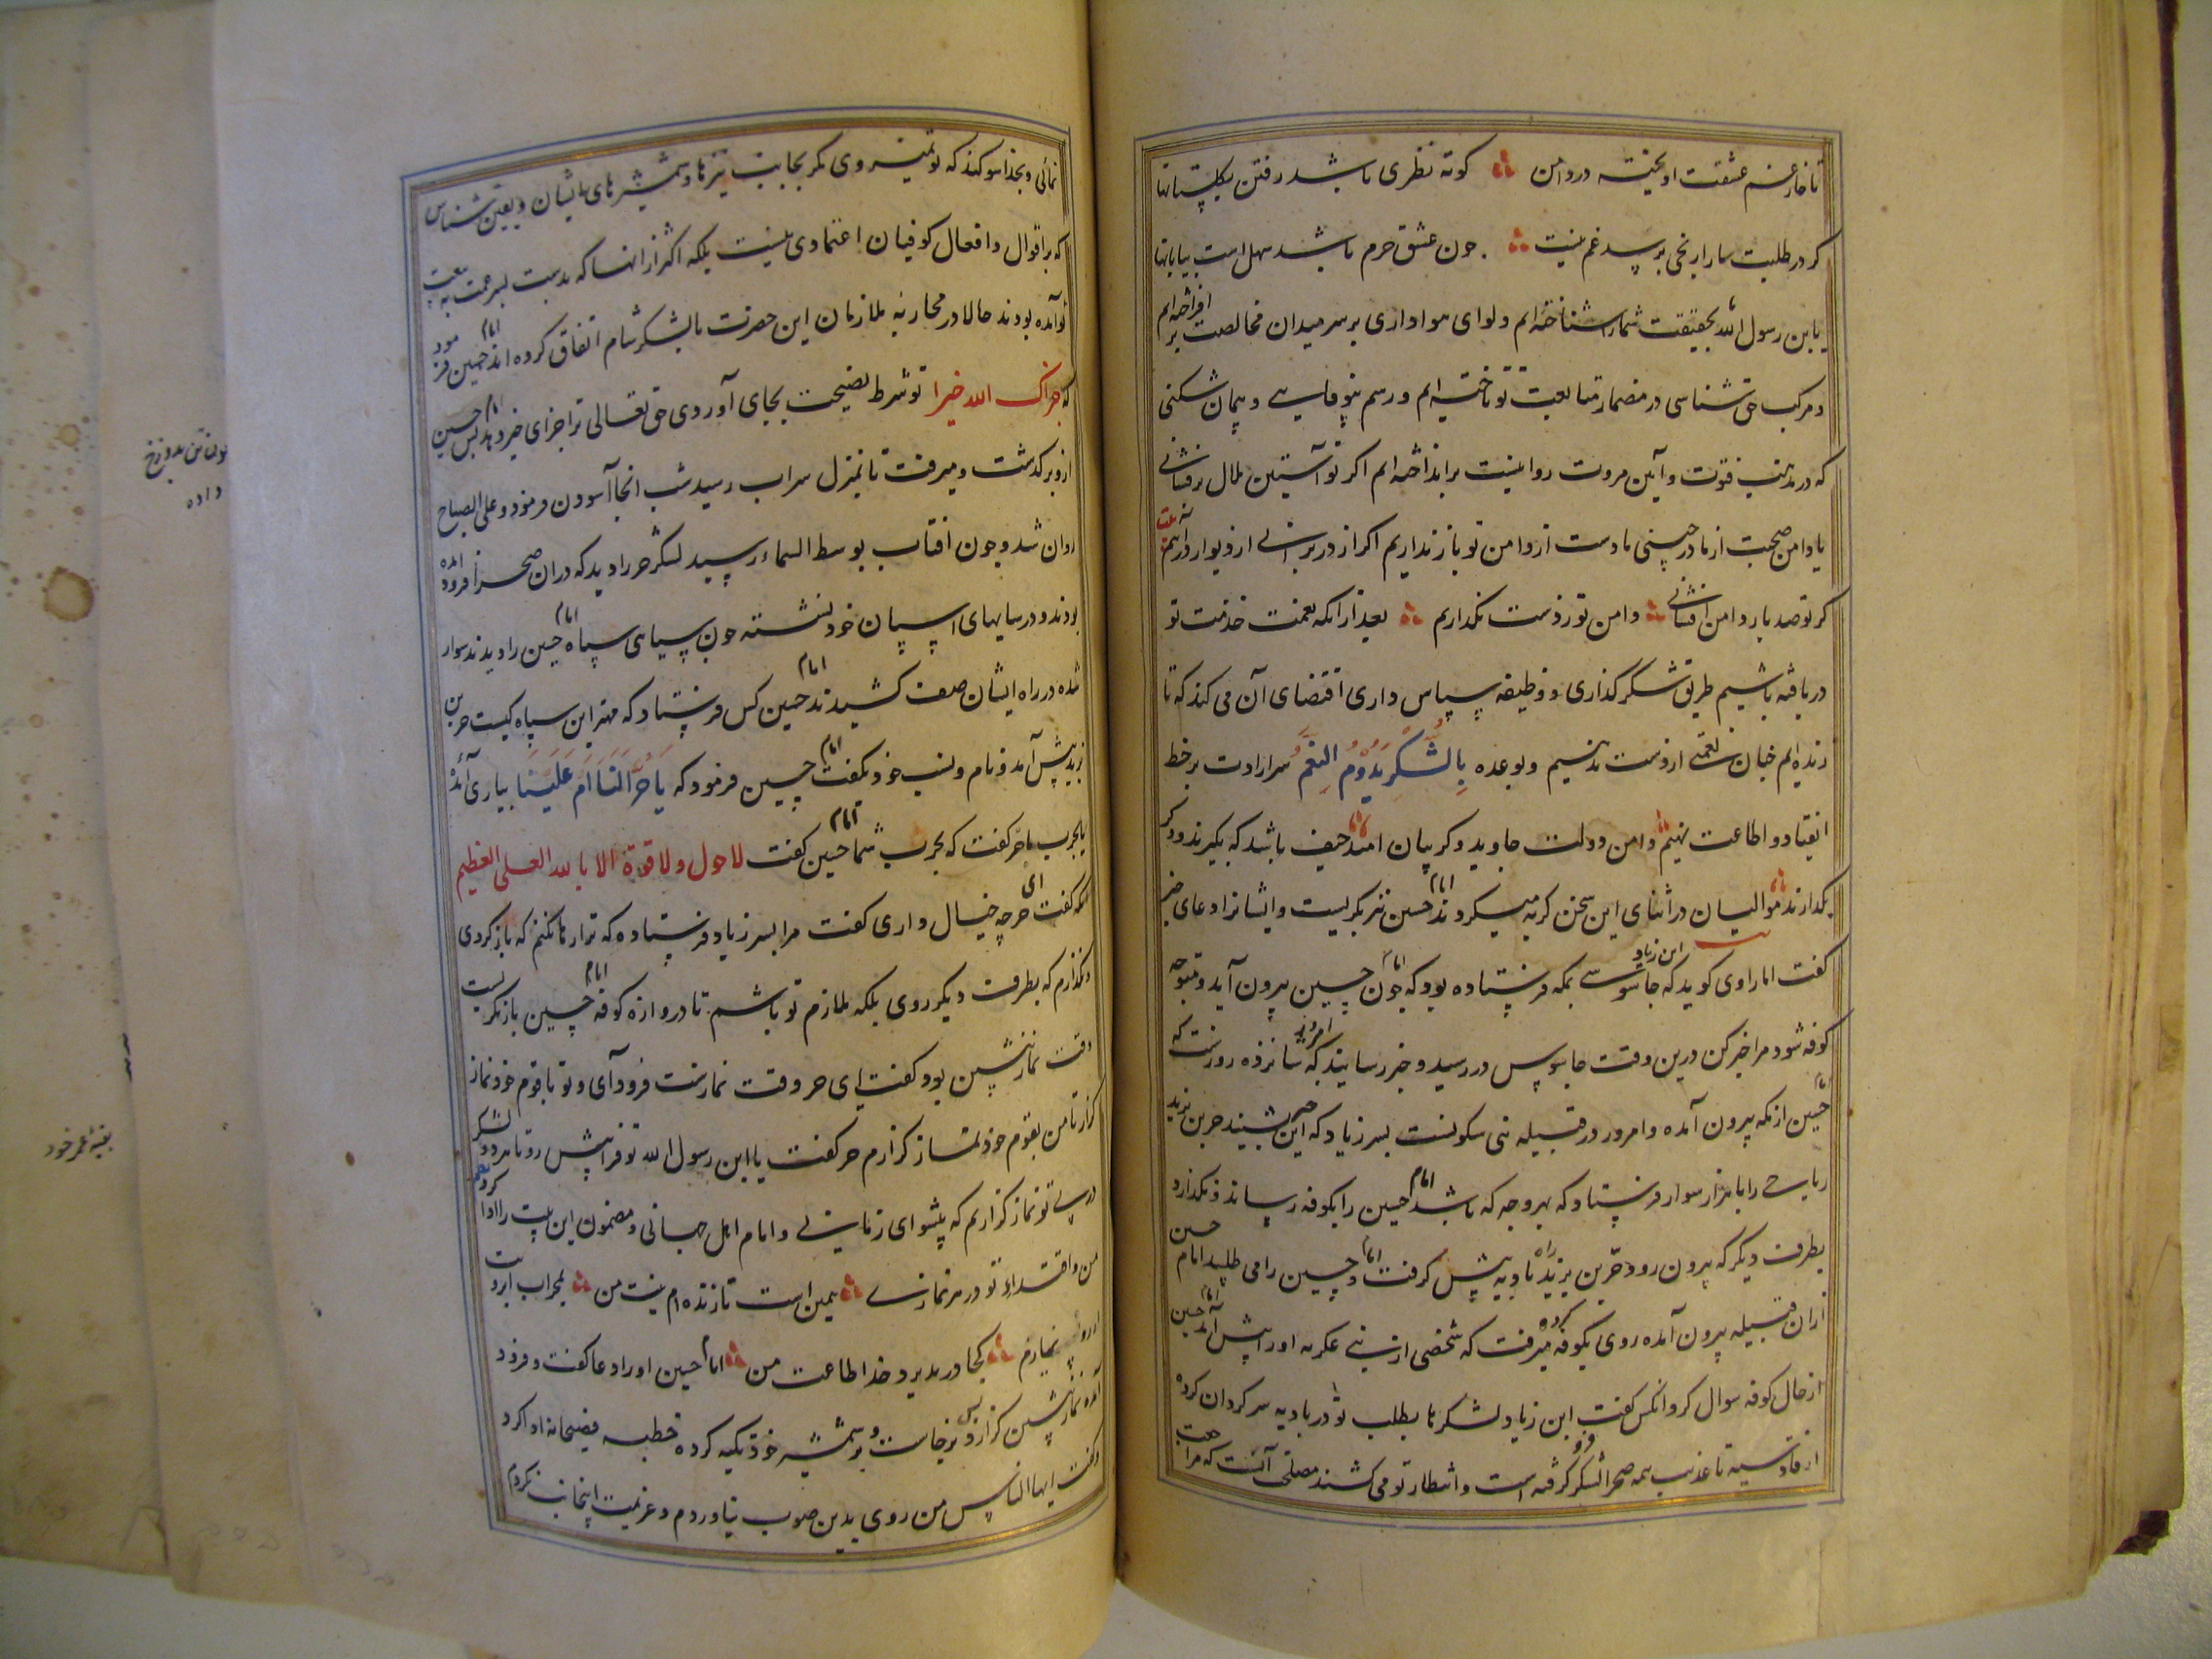 تا خار غم عشقت اویخته در دامن کوته نظری باشد رفتن بگلستانها
کر در طلبت مارا رنجی برسد غم نیست چون عشق حرم باشد سهل است بیابانها
یابن رسول الله بحقیقت شما را شناخته ایم و لوای هواداری بر سر میدان مخالصت بر افراخته ایم
و مرکب حق شناسی در مضمار متابعت تو تاخته ایم و رسم بیوفایی و پیمان شکنی
که در مذهب فتوت و آیین مروت روا نیست برانداخته ایم اکر تو آستین ملال برفشانی
یا دامن صحبت از ما درچینی ما دست از دامن تو باز نداریم اکر از در برانی از دیوار درآییم
کر تو صد بار دامن افشانی دامن تو ز دست نکذاریم بعد از انکه نعمت خدمت تو
دریافته باشیم طریق شکر کذاری و وظیفه سپاس داری اقتضای آن می کند که تا
زنده ایم چنان نعمتی از دست ندهیم و بوعده بِالشُّکرِ یَدُومُ النِّعَم سر ارادت بر خط
انقیاد و اطاعت نهیم دامن دولت جاوید و کریبان امید حیف باشد که بکیرند و دکر
بکذارند موالیان در اثنای این سخن کریه میکردند امام حسین نیز بکریست و ایشانرا دعای خیر
کفت اما راوی کوید که ابن زیاد جاسوسی بمکه فرستاده بود که چون امام حسین بیرون آید و متوجه
کوفه شود مرا خبر کن درین وقت جاسوس در رسید و خبر رسانید که امروز شانزده روزست که
امام حسین از مکه بیرون آمده و امروز در قبیله بنی سکونست پسر زیاد که این خبر بشنید حر بن یزید
ریاحی را با هزار سوار فرستاد که بهر وجه که باشد امام حسین را بکوفه رساند و نکذارد
بطرف دیکر که بیرون رود حر بن یزید راه بادیه پیش کرفت و امام حسین را می طلبید امام حسین
ازان قبیله بیرون آمده روی بکوفه کرده میرفت که شخصی از بنی عکرمه او را پیش آمد امام حسین
از حال کوفه سوال کرد انکس کفت ابن زیاد لشکرها بطلب تو در بادیه سرکردان کرده
از قادسیه تا عذیب همه صحرا لشکر کرفته است و انتظار تو می کشند مصلحت آنست که مراجعت
نمائی و بخدا سوکند که تو نمیروی مکر بجانب نیزها و شمشیرهای ایشان و یقین شناس
که بر اقوال و افعال کوفیان اعتمادی نیست بلکه اکثر ازانها که بدست پسر عمت به بیعت
تو آمده بودند حالا در محاربه ملازمان این حضرت با لشکر شام اتفاق کرده اند امام حسین فرمود
که جزاک الله خیرا تو شرط نصیحت بجای آوردی حق تعالی ترا جزای خیر دهد پس امام حسین
ازو برکذشت و میرفت تا بمنزل سراب رسید شب انجا آسودن فرمود و علی الصباح
روان شد و چون افتاب بوسط السماء رسید لشکر حر را دید که دران صحرا فرود آمده
بودند و در سایهای اسپان خود نشسته چون سیاهی سپاه امام حسین را دیدند سوار
شده در راه ایشان صف کشیدند امام حسین کس فرستاد که مهتر این سپاه کیست حر بن
یزید پیش آمد و نام و نسب خود بکفت امام حسین فرمود که یَا حُرُّ اَلَنَا اَم عَلَینَا بیاری آمدهٔ
یا بحرب ما حر کفت که بحرب شما امام حسین کفت لا حول ولا قوة الا بالله العلی العظیم
پس کفت ای حر چه خیال داری کفت مرا پسر زیاد فرستاده که ترا رها نکنم که باز کردی
و نکذارم که بطرف دیکر روی بلکه ملازم تو باشم تا دروازه کوفه امام حسین بازنکریست
وقت نماز پیشین بود کفت ای حر وقت نمازست فرود آی و تو با قوم خود نماز
کزار تا من بقوم خود نماز کزارم حر کفت یا ابن رسول الله تو فرا پیش رو تا هر دو لشکر
در پی تو نماز کزاریم که پیشوای زمانی و امام اهل جهانی و مضمون این بیت را ادا کرد نظم
من و اقتداء تو در هر نمازی همین است تا زنده ام نیت من بمحراب ابروت
ار رو نیارم کجا در پذیرد خدا طاعت من امام حسین او را دعا کفت و فرود
آمده نماز پیشین کزارد پس برخاست و بر شمشیر خود تکیه کرده خطبه فصیحانه ادا کرد
و کفت ایها الناس من روی بدین صوب نیاوردم و عزیمت اینجانب نکردم
داده
بقیه عمر خود